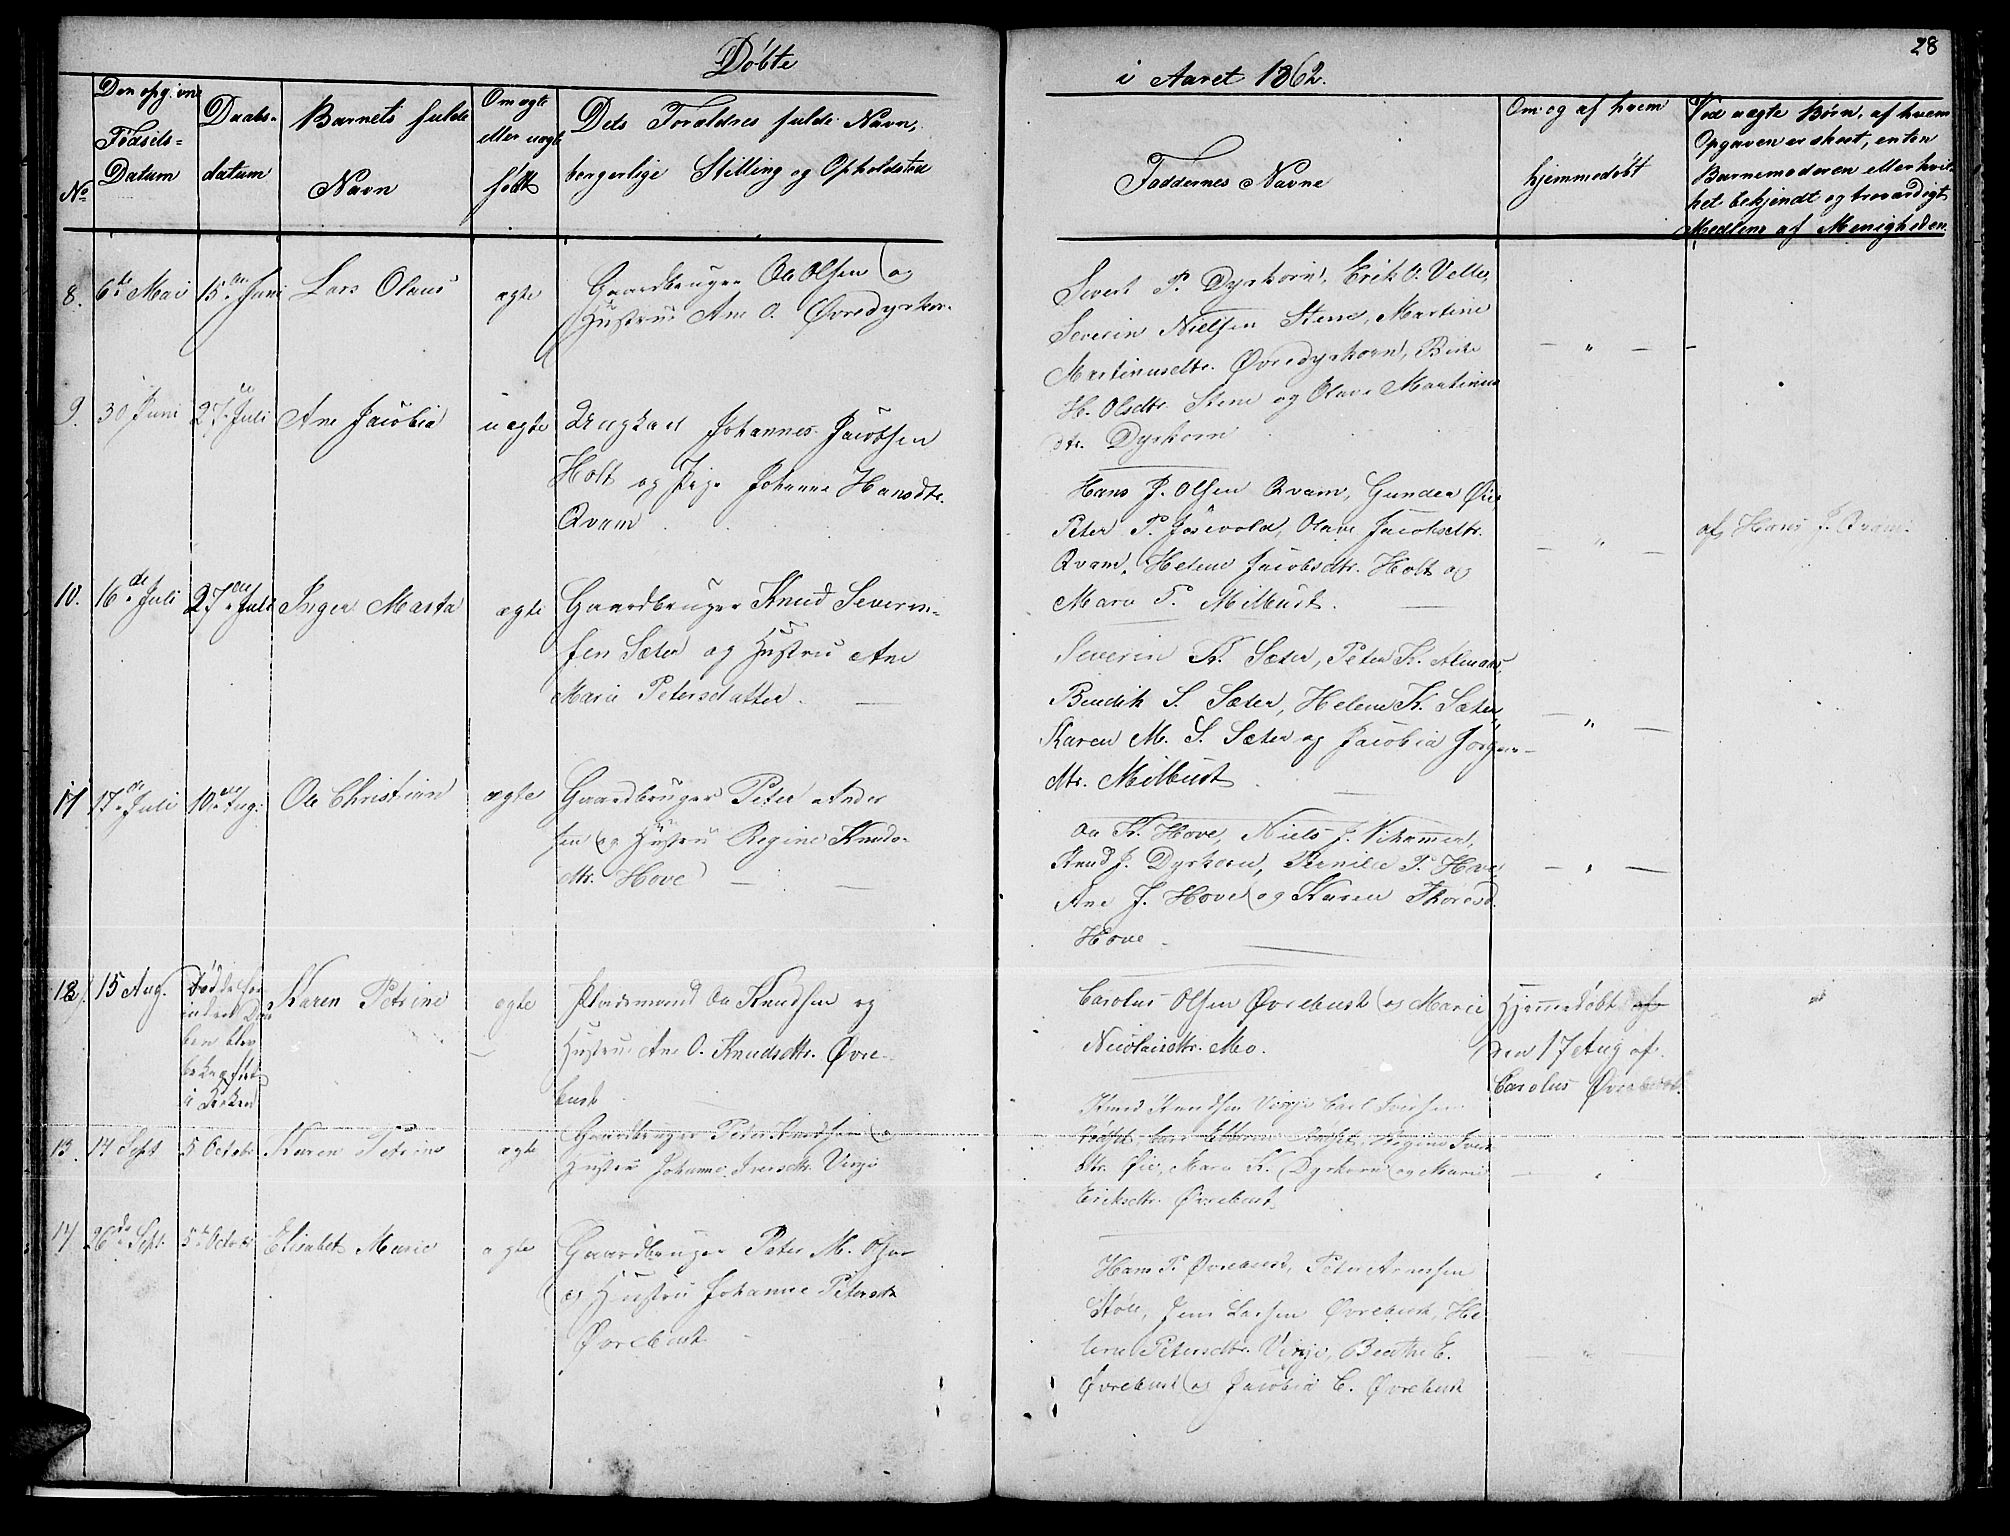 Døbte
i Aaret 1862.
28
No
Den opgivne Fødsels-Datum
Daabs-datum
Barnets fulde Navn
Om ægte eller uægte født
Dets Forældres fulde Navn, borgerlige Stilling og Opholdsted
Faddernes Navne
Om og af hvem hjemmedøbt
Ved uægte Børn, af hvem
Opgaven er skeet, enten
Barnemoderen eller hvil-
ket bekjendt og troværdigt
Medlem af Menigheden
8. 6te Mai 15de Juni Lars Olaus ægte
Gaardbruger Ole Olsen og
Hustrue Ane O. Øvredyrkorn
Sivert P. Dyrkorn, Erik O. Velle,
Severin Nielsen Stene, Martine
Martinusdtr. Øvredyrkorn, Berte
H. Olsdtr. Stene og Olave Martinus
dtr. Dyrkorn
— " —
9. 30 Juni 27de Juli Ane Jacobia uægte
Ungkarl Johannes Jacobsen
Holt og Pige Johanne Hansdtr.
Qvam
Hans J. Olsen Qvam, Gunder Øie,
Peter P. Olave Jacobsdtr.
Qvam, Helene Jacobsdtr. Holt og
Mara P. Melbust.
— " —
af Hans J. Qvam
10. 16de Juli 27de Juli Inger Marta ægte
Gaardbruger Knud Severin-
sen Sæter og Hustru Ane
Marie Petersdatter.
Severin K. Sæter, Peter K.
Bendik S. Sæter, Helene K. Sæter,
Karen M. S. Sæter og Jacobia Jørgens
dtr. Melbust
— " —
11 17de Juli 10de Aug. Ole Christian ægte
Gaardbruger Peter Ander
sen og Hustru Regine Knuds-
dtr. Hove
Ole K. Hove, Niels J.
Knud J. Dyrkorn, Pernille P. Hove
Ane J. Hove og Karen Thoresd.
Hove
— " —
12. 15 Aug. Døde for
inden Daa
ben blev
bekræftet
i Kirken
Karen Petrine ægte
Pladsmand Ole Knudsen og
Hustrue Ane O. Knudsdtr. Øvre-
bust
Carolus Olsen Øvrebust og Marie
Nicolaisdtr. Mo.
Hjemmedøbt af
den 17 Aug af
Carolus Øvrebust
13. 14 Sept 5 Octobr Karen Petrine ægte
Gaardbruger Peter Knudsen og
Hustru Johanne Iversdtr. Vinje
Knud Knudsen Vinje Carl Iversen
Regine Ivers
dtr. Øie, Mara K. Dyrkorn og Marie
Eriksdtr. Øvrebust
14. 26de Sept. 5te Octobr Elisabet Marie ægte
Gaardbruger Peter M. Olsen
og Hustru Johanne Petersdtr
Øvrebust
Hans P. Øvrebust, Peter Arnesen
Jens Larsen Øvrebust, He
lene Petersdtr. Vinje, Beathe E.
Øvrebust og Jacobia C. Øvrebust
— " —